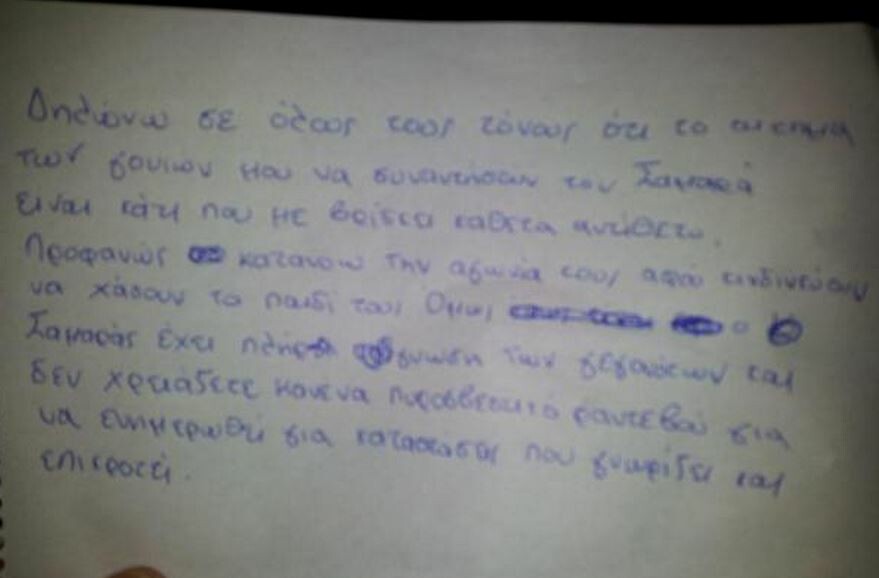 Δηλώνω σε όλους τους τόνους ότι το αίτημα
των γονιών μου να συναντήσουν τον Σαμαρά
είναι κάτι που με βρίσκει κάθετα αντίθετο.
Προφανώς κατανοώ την αγωνία τους αφού κινδινεύουν
να χάσουν το παιδί τους Όμως ο
Σαμαράς έχει πλήρη γνωση των γεγονότων και
δεν χρειάζετε κανενα ραντεβού για
να ενημερωθεί για καταστάσεις που γνωρίζει και
επικροτεί.